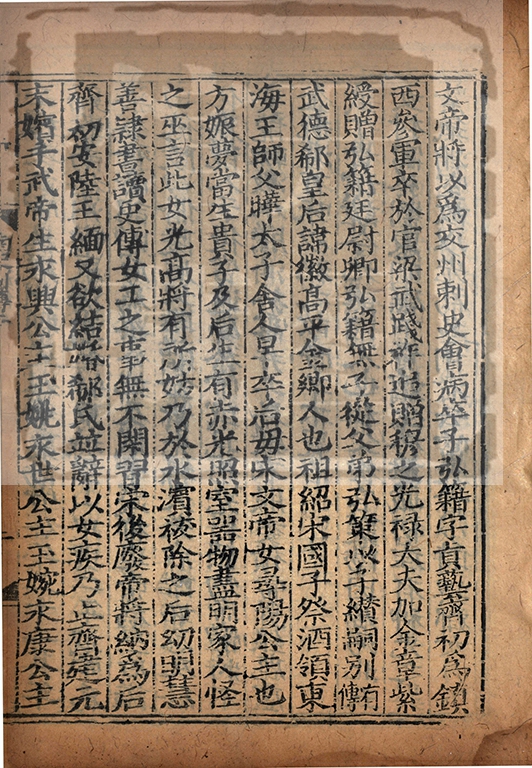 文帝將以爲交州刺史會病卒子弘籍字眞藝齊初爲鎮
西參軍卒於官梁武踐祚追贈穆之光祿大夫加金章紫
綬贈弘籍廷尉卿弘籍無子從父弟弘策以子纉嗣別有傳
武德郗皇后諱徽高平金鄉人也祖紹宋國子祭酒領東
海王師父曄太子舍人早卒后母宋文帝女尋陽公主也
方娠夢當生貴子及后生有赤光照室器物盡明家人怪
之巫言此女光高將有所妨乃於水濱祓除之后幼明慧
善隷書讀史傳女工之事無不閑習宋後廢帝將納爲后
齊初安陸王緬又欲結婚郗氏並辭以女疾乃止齊建元
末嬪于武帝生永興公主玉姚永世公主玉婉永康公主